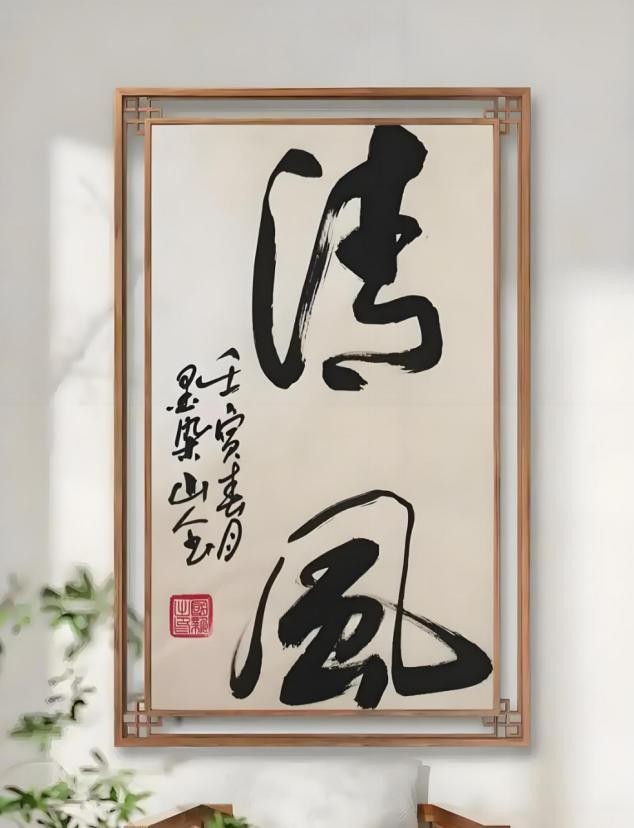 清風
壬寅春月
墨染山